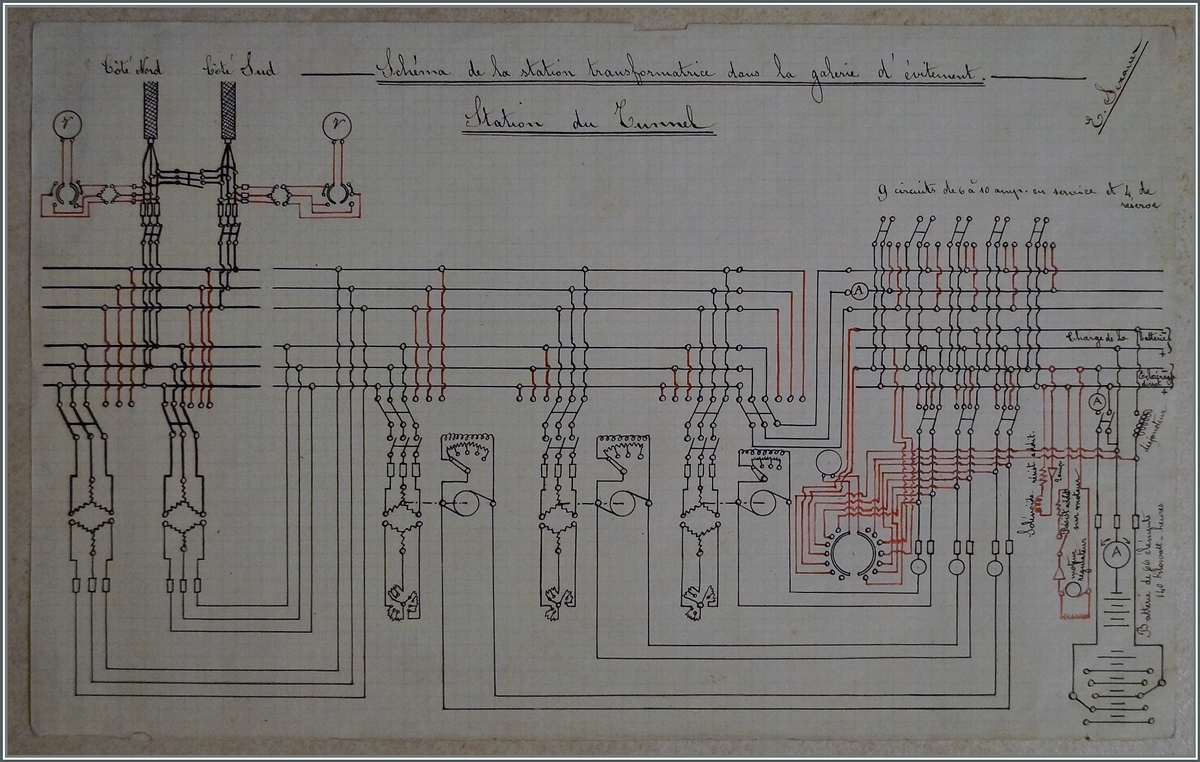 Côté Nord
Côté Sud
Schéma de la station transformatrice dans la galerie d'évitement.
Station du Tunnel
V
V
9 circuits de 6 à 10 amp. en service et 4 de
réserve
A
Charge de la batterie
+
Eclairage direct
+
A
disjoncteur
Solénoïde
moteur régulateur
A
Batterie de 66 éléments
140 kilowatt-heures